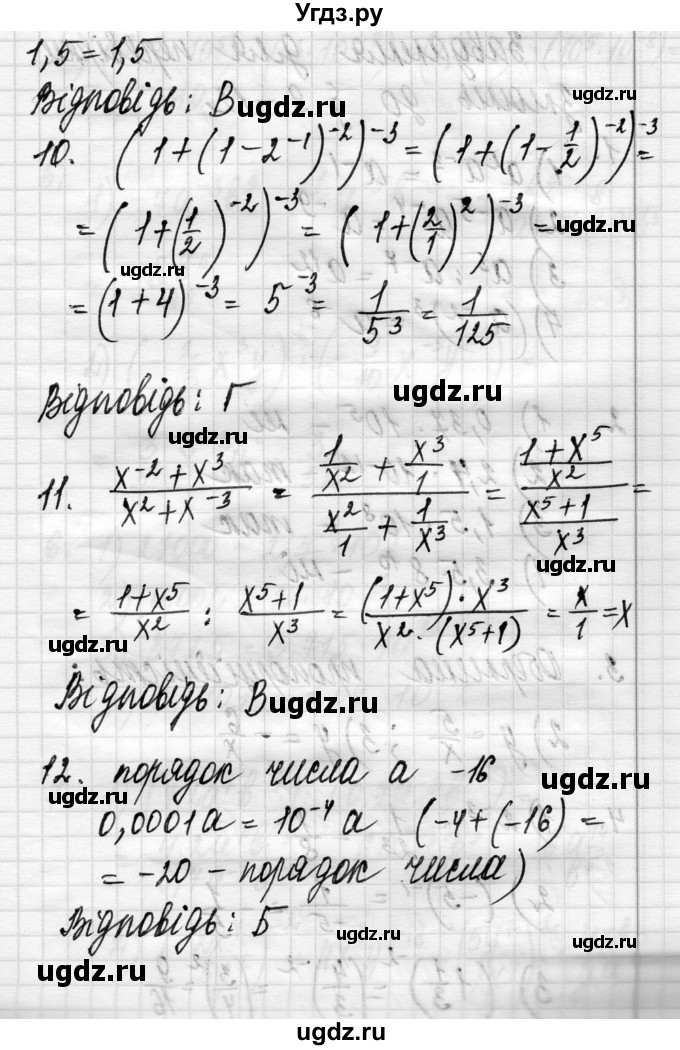 Угдз.ру
1,5 = 1,5
Відповідь: В ugdz.ru
10. (1+(1-2⁻¹)⁻²)⁻³ = (1+(1-1/2)⁻²)⁻³ =
= (1+(1/2)⁻²)⁻³ = (1+(2/1)²)⁻³ =
ugdz.ru
ugdz.ru
= (1+4)⁻³ = 5⁻³ = 1/5³ = 1/125
Відповідь: Г ugdz.ru
ugdz.ru
11. (x⁻²+x³)/(x²+x⁻³) = (1/x² + x³/1)/(x²/1 + 1/x³) = ((1+x⁵)/x²)/((x⁵+1)/x³) =
ugdz.ru
= (1+x⁵)/x² : (x⁵+1)/x³ = ((1+x⁵)·x³)/(x²·(x⁵+1)) = x/1 = x
ugdz.ru
ugdz.ru
Відповідь: В ugdz.ru
12. порядок числа а -16
ugdz.ru
ugdz.ru
0,0001а = 10⁻⁴а (-4+(-16) =
= -20 - порядок числа)
Відповідь: Б
ugdz.ru
ugdz.ru
ugdz.ru
ugdz.ru